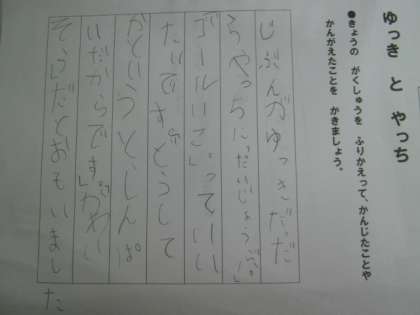 ゆっき と やっち
●きょうの がくしゅうを ふりかえって、かんじたことや
かんがえたことを かきましょう。
じぶんがゆっきだった
らやっちに「だいじょうぶ。」
「ゴールいこ。」っていい
たいです。どうして
かというと、しんぱ
いだからです。かわい
そうだとおもいました